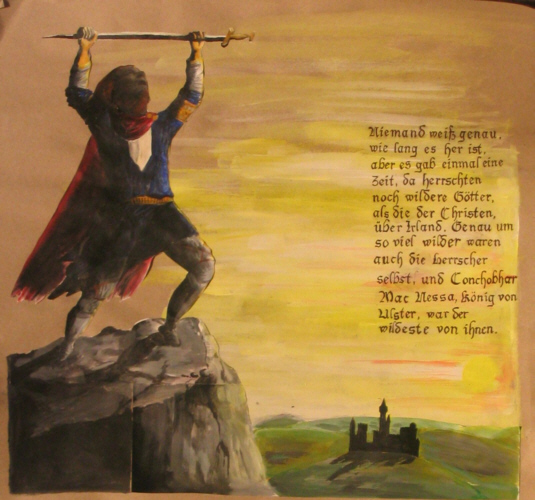 Niemand weiß genau,
wie lang es her ist,
aber es gab einmal eine
Zeit, da herrschten
noch wildere Götter,
als die der Christen,
über Irland. Genau um
so viel wilder waren
auch die Herrscher
selbst, und Conchobhar
Mac Nessa, König von
Ulster, war der
wildeste von ihnen.